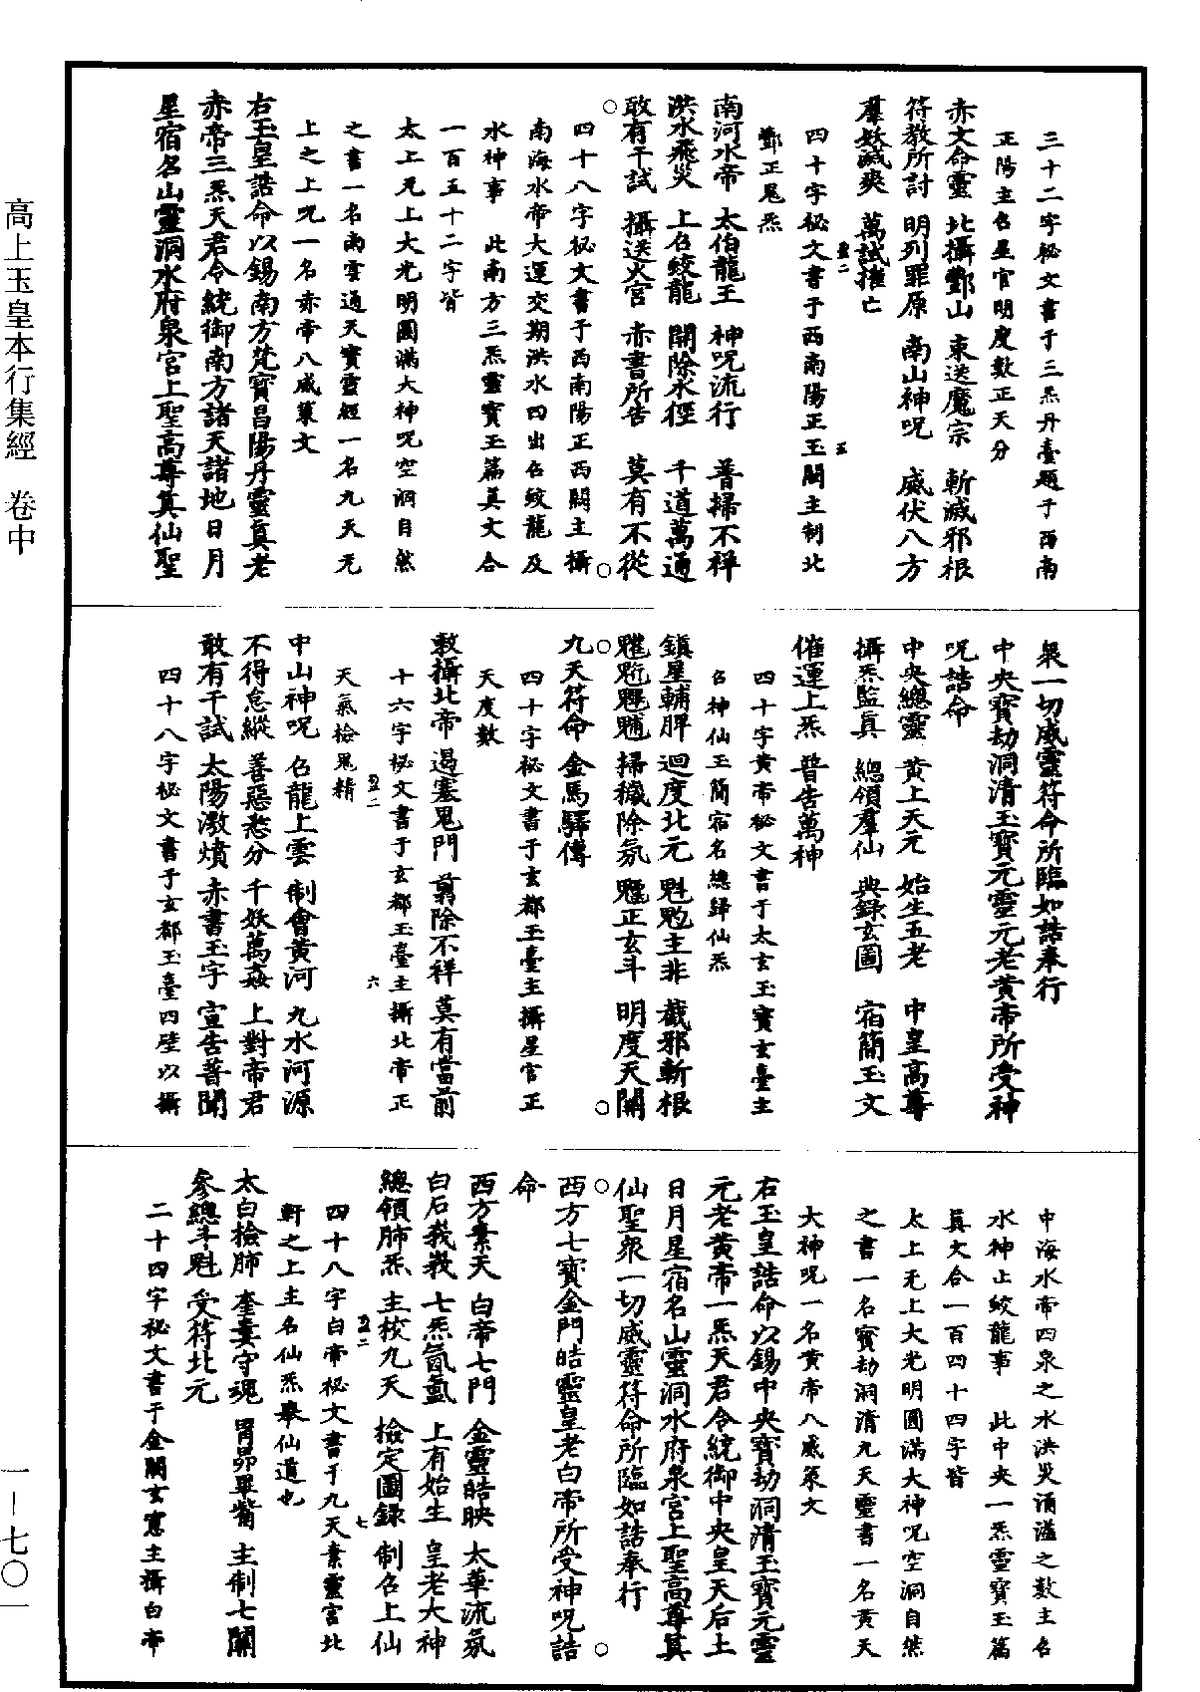 三十二字秘文書于三炁丹臺題于西南
正陽主名星官明度數正天分
赤文命靈　北攝酆山　東送魔宗　斬滅邪根
符教所討　明列罪原　南山神呪　威伏八方
羣妖滅爽　萬試摧亡
四十字秘文書于西南陽正玉闕主制北
酆正鬼炁
南河水帝　太伯龍王　神呪流行　普掃不祥
洪水飛災　上名蛟龍　開除水徑　千道萬通
敢有干試　攝送火宮　赤書所告　莫有不從
四十八字秘文書于西南陽正西闕主攝
南海水帝大運交期洪水四出名蛟龍及
水神事　此南方三炁靈寶玉篇真文合
一百五十二字皆
太上无上大光明圓滿大神呪空洞自然
之書一名南雲通天寶靈經一名九天元
上之上呪一名赤帝八威策文
右玉皇誥命以錫南方梵寶昌陽丹靈真老
赤帝三炁天君令統御南方諸天諸地日月
星宿名山靈洞水府泉宮上聖高尊真仙聖
衆一切威靈符命所臨如誥奉行
中央寶劫洞清玉寶元靈元老黃帝所受神
呪誥命
中央總靈　黃上天元　始生五老　中皇高尊
攝炁監真　總領羣仙　典錄玄圖　宿簡玉文
催運上炁　普告萬神
四十字黃帝秘文書于太玄玉寶玄臺主
召神仙玉簡宿名總歸仙炁
鎮星輔脾　迴度北元　魁䰢主非　截邪斬根
掃穢除氛　正玄斗　明度天關
九天符命　金馬驛傳
四十字秘文書于玄都玉臺主攝星官正
天度數
敕攝北帝　遏塞鬼門　翦除不祥　莫有當前
十六字秘文書于玄都玉臺主攝北帝正
天氣檢鬼精
中山神呪　召龍上雲　制會黃河　九水河源
不得怠縱　善惡悉分　千妖萬姦　上對帝君
敢有干試　太陽激熿　赤書玉字　宣告普聞
四十八字秘文書于玄都玉臺四壁以攝
中海水帝四泉之水洪災涌溢之數主召
水神止蛟龍事　此中央一炁靈寶玉篇
真文合一百四十四字皆
太上无上大光明圓滿大神呪空洞自然
之書一名寶劫洞清九天靈書一名黃天
大神呪一名黃帝八威策文
右玉皇誥命以錫中央寶劫洞清玉寶元靈
元老黃帝一炁天君令統御中央皇天后土
日月星宿名山靈洞水府泉宮上聖高尊真
仙聖衆一切威靈符命所臨如誥奉行
西方七寶金門皓靈皇老白帝所受神呪誥
命
西方素天　白帝七門　金靈皓映　太華流氛
白石峩峩　七炁氤氳　上有始生　皇老大神
總領肺炁　主校九天　檢定圖錄　制召上仙
四十八字白帝秘文書于九天素靈宮北
軒之上主召仙炁舉仙道也
太白檢肺　奎婁守魂　胃昴畢觜　主制七關
參總斗魁　受符北元
二十四字秘文書于金闕玄窻主攝白帝
高上玉皇本行集經　卷中
一—七〇一